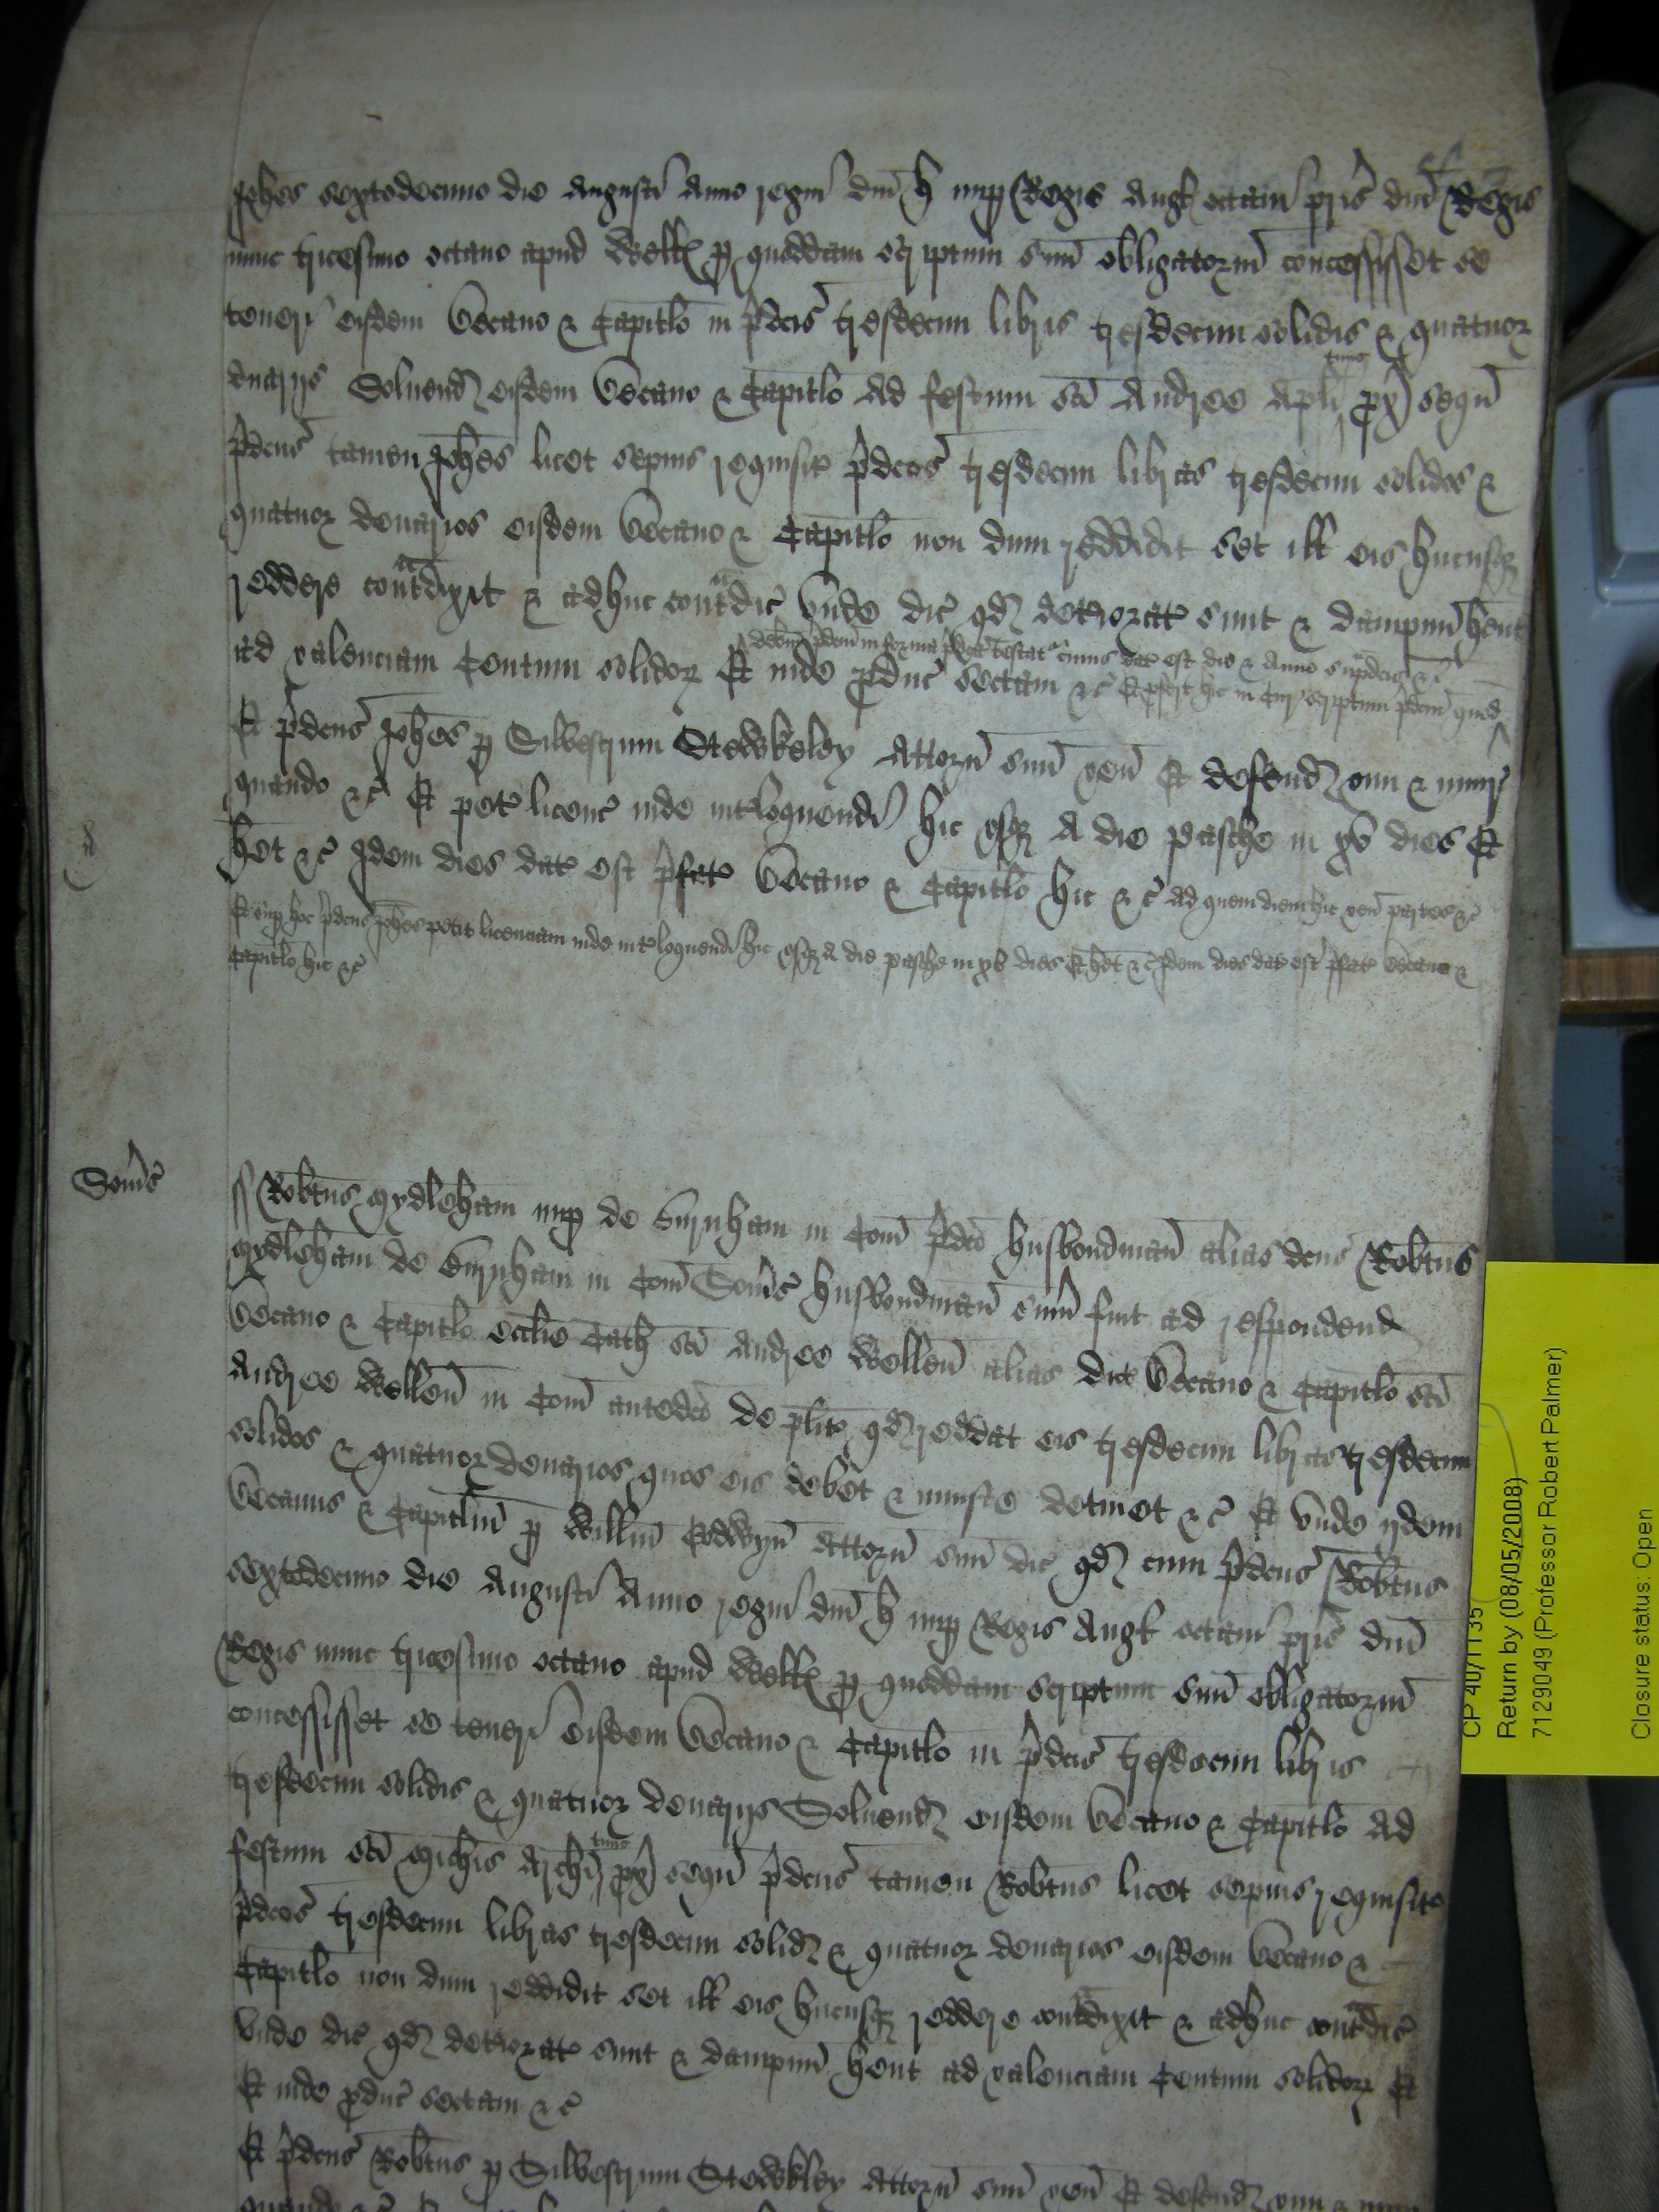 Joħes sextodecimo die Augusti Anno regni dni H nup Regis Angł octavi pris dni Regis
nunc tricesimo octavo apud Wellꝭ p quoddam scriptum suu obligatoriu concessisset se
teneri eisdem Decano & Capitlo in pdcis tresdecim libris tresdecim solidis & quatuor
denarijs Solvend eisdem Decano & Capitlo Ad festum sci Andree Apli tunc px sequ
pdcus tamen Joħes licet sepius requisit pdcas tresdecim libras tresdecim solidos &
quatuor denarios eisdem Decano & Capitlo non dum reddidit set ill eis hucusqz
reddere contadixit & adhuc contadic Unde dic qd deteriorat sunt & dampnu hent
ad valenciam Centum solidor Et inde pduc sectam &c Et pfert hic in Cur scriptum pdcm quod
debitu pdcm in forma pdca testat cuius dat est die & Anno supadcis &c
Et pdcus Joħes p Silvestrum Stewkeley Attorn suu ven Et defend vim & iniur
quando &c Et pet licenc inde intloquendi hic usqz A die pasche in xv dies Et
het &c Idem dies dat est pfat Decano & Capitlo hic &c Ad quem diem hic ven partes &c
Et sup hoc pdcus Joħes petit licenciam inde intloquendi hic usqz A die pasche in xv dies Et het &c Idem dies dat est pfat Decano &
Capitlo hic &c
Soms
Robtus Mydleham nup de Burnham in Com pdco husbondman alias dcus Robtus
Mydleham de Burnham in Com Soms husbondman sum fuit ad respondend
Decano & Capitlo ecclie Cath sci Andree Wellen alias dict Decano & Capitlo sci
Andree Wellen in Com antedco de plito qd reddat eis tresdecim libras tresdecim
solidos & quatuor denarios quos eis debet & iniuste detinet &c Et unde ijdem
Decanus & Capitlm p Willm Godwyn Attorn suu dic qd cum pdcus Robtus
sextodecimo die Augusti Anno regni dni H nup Regis Angł octavi pris dni
Regis nunc tricesimo octavo apud Wellꝭ p quoddam scriptum suu obligatoriu
concessisset se teneri eisdem Decano & Capitlo in pdcis tresdecim libris
tresdecim solidis & quatuor denarijs Solvend eisdem Decano & Capitlo Ad
festum sci Michis Archi tunc px sequ pdcus tamen Robtus licet sepius requisit
pdcas tresdecim libras tresdecim solid & quatuor denarios eisdem Decano &
Capitlo non dum reddidit set ill eis hucusqz reddere contadixit & adhuc contadic
Unde dic qd deteriorat sunt & dampnu hent ad valenciam Centum solidor Et
Et inde pduc sectam &c
Et pdcus Robtus p Silvestrum Stewkley Attorn suu ven Et defend vim & iniur
quando &c Et
CP 40/1135
Return by (08/05/2008)
7129049 (Professor Robert Palmer)
Closure status: Open